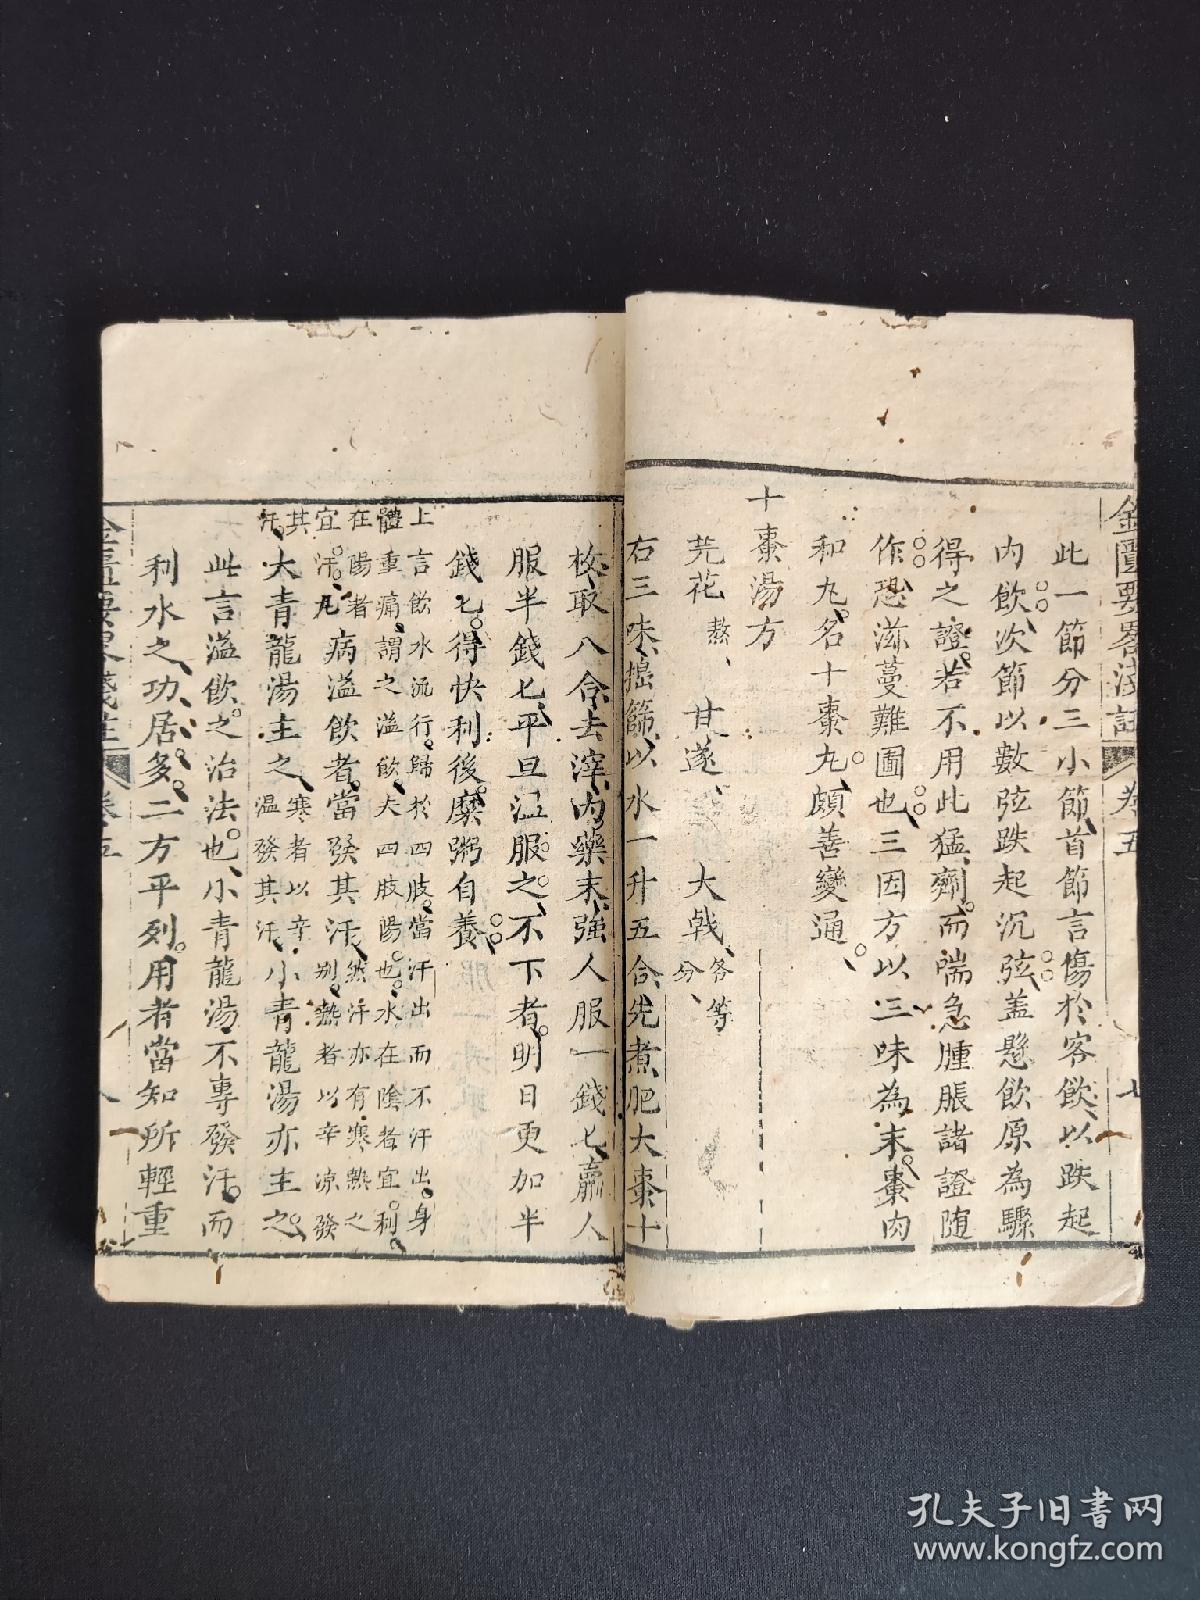 金匱要畧淺註 卷五 七
此一節分三小節首節言傷於客飲以跌起
內飲次節以數弦跌起沉弦盖懸飲原為驟
得之證若不用此猛劑而喘急腫脹諸證隨
作恐滋蔓難圖也三因方以三味為末棗肉
和丸名十棗丸頗善變通
十棗湯方
芫花熬 甘遂 大戟各等分
右三味搗篩以水一升五合先煮肥大棗十
枚取八合去滓內藥末強人服一錢匕羸人
服半錢匕平旦温服之不下者明日更加半
錢匕得快利後糜粥自養
上言飲水流行歸於四肢當汗出而不汗出身
體重痛謂之溢飲夫四肢陽也水在陰者宜利
在陽者宜汗凡病溢飲者當發其汗然汗亦有寒熱之別熱者以辛涼發
其汗大青龍湯主之寒者以辛温發其汗小青龍湯亦主之
此言溢飲之治法也小青龍湯不專發汗而
利水之功居多二方平列用者當知所輕重
金匱要畧淺註 卷五 八
孔夫子旧书网
www.kongfz.com